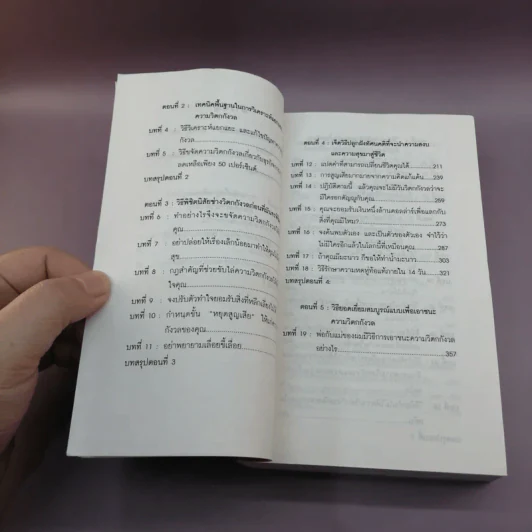 ตอนที่ 2 : เทคนิคพื้นฐานในการวิเคราะห์
ความวิตกกังวล
บทที่ 4 : วิธีวิเคราะห์แยกแยะ และแก้ไขปัญหา
กังวล
บทที่ 5 : วิธีขจัดความวิตกกังวลเกี่ยวกับธุรกิจ
ลดเหลือเพียง 50 เปอร์เซ็นต์
บทสรุปตอนที่ 2
ตอนที่ 3 : วิธีพิชิตนิสัยช่างวิตกกังวลก่อนที่มัน
บทที่ 6 : ทำอย่างไรจึงจะขจัดความวิตกกังวล
คุณ
บทที่ 7 : อย่าปล่อยให้เรื่องเล็กน้อยมาทำให้คุณ
สุข
บทที่ 8 : กฎสำคัญที่ช่วยขับไล่ความวิตกกังวล
ใจคุณ
บทที่ 9 : จงปรับตัวทำใจยอมรับสิ่งที่หลีกเลี่ยง
บทที่ 10 : กำหนดขั้น "หยุดสูญเสีย" ให้
กังวลของคุณ
บทที่ 11 : อย่าพยายามเลื่อยขี้เลื่อย
บทสรุปตอนที่ 3
ตอนที่ 4 : เจ็ดวิธีปลูกฝังทัศนคติที่จะนำความสงบ
และความสุขมาสู่ชีวิต
บทที่ 12 : แปดคำที่สามารถเปลี่ยนชีวิตคุณได้ 211
บทที่ 13 : การสูญเสียมากมายจากความคิดแก้แค้น 239
บทที่ 14 : ปฏิบัติตามนี้ แล้วคุณจะไม่มีวันวิตกกังวลว่าจะ
ไม่มีใครอกตัญญูกับคุณ 259
บทที่ 15 : คุณจะยอมรับเงินหนึ่งล้านดอลลาร์เพื่อแลกกับ
สิ่งที่คุณมีไหม? 273
บทที่ 16 : จงค้นพบตัวเอง และเป็นตัวของตัวเอง จำไว้ว่า
ไม่มีใครอีกแล้วในโลกนี้ที่เหมือนคุณ 287
บทที่ 17 : ถ้าคุณมีมะนาว ก็ขอให้ทำน้ำมะนาว 303
บทที่ 18 : วิธีรักษาความหดหู่ท้อแท้ภายใน 14 วัน 321
บทสรุปตอนที่ 4
ตอนที่ 5 : วิธียอดเยี่ยมสมบูรณ์แบบเพื่อเอาชนะ
ความวิตกกังวล
บทที่ 19 : พ่อกับแม่ของผมมีวิธีการเอาชนะความวิตกกังวล
อย่างไร 357